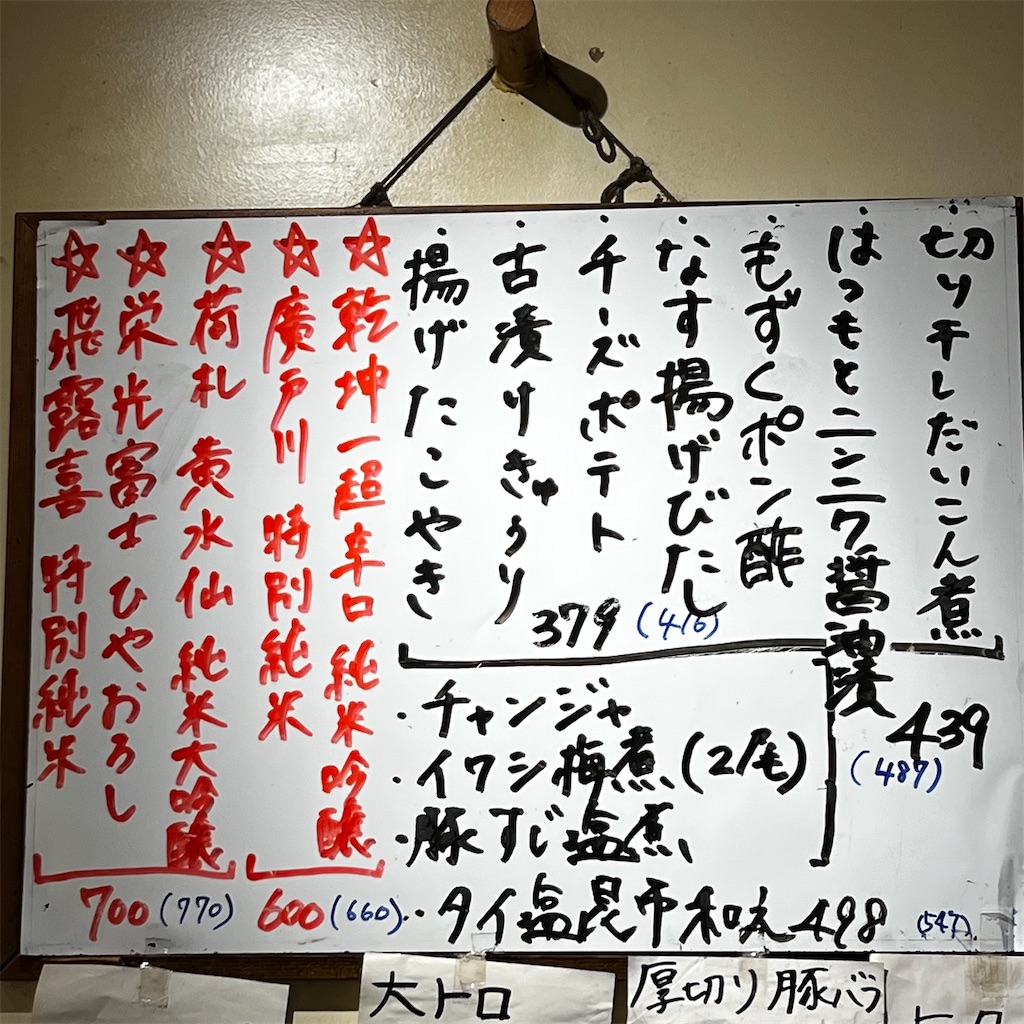 ・切り干しだいこん煮
・はつもとニンニク醤油漬
439
(487)
・もずくポン酢
・なす揚げびたし
・チーズポテト
・古漬けきゅうり
・揚げたこやき
379 (416)
・チャンジャ
・イワシ梅煮(2尾)
・豚すじ塩煮
・タイ塩昆布和え 498 (547)
☆乾坤一超辛口 純米吟醸
☆廣戸川 特別純米
600(660)
☆荷札 黄水仙 純米大吟醸
☆栄光冨士 ひやおろし
☆飛露喜 特別純米
700(770)
大トロ
厚切り豚バラ